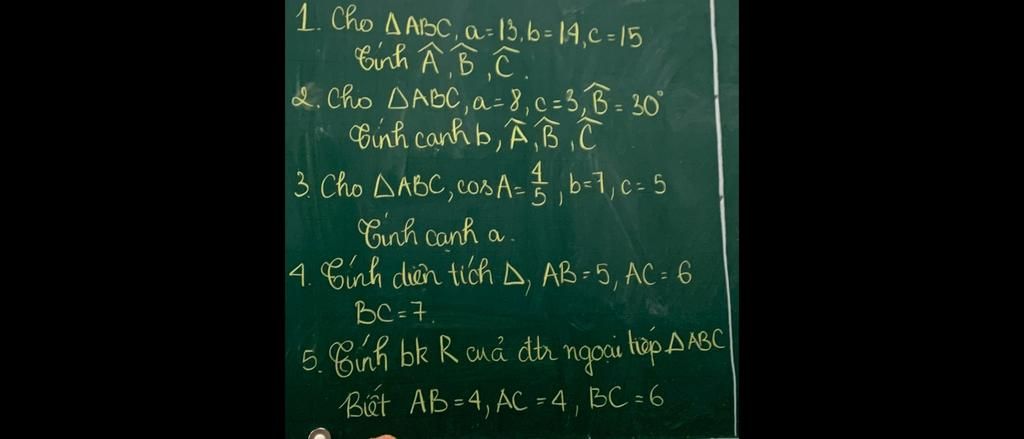 1. Cho △ABC, a=13, b=14, c=15
Tính Â, B̂, Ĉ.
2. Cho △ABC, a=8, c=3, B̂=30°
Tính cạnh b, Â, B̂, Ĉ
3. Cho △ABC, cosA=4/5, b=7, c=5
Tính cạnh a.
4. Tính diện tích △, AB=5, AC=6
BC=7.
5. Tính bk R cuả đtr ngoại tiếp △ABC
Biết AB=4, AC=4, BC=6